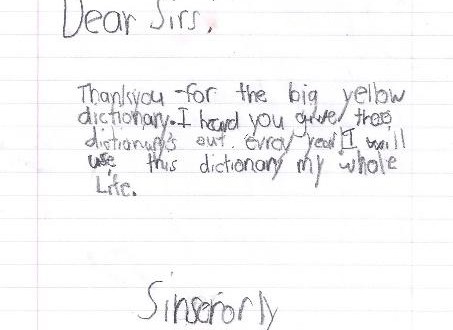 Dear Sirs,
Thankyou for the big yellow
dictionary. I heard you give thes
dictionary's out. evray year I will
use this dictionary my whole
Life.
Sinserorly